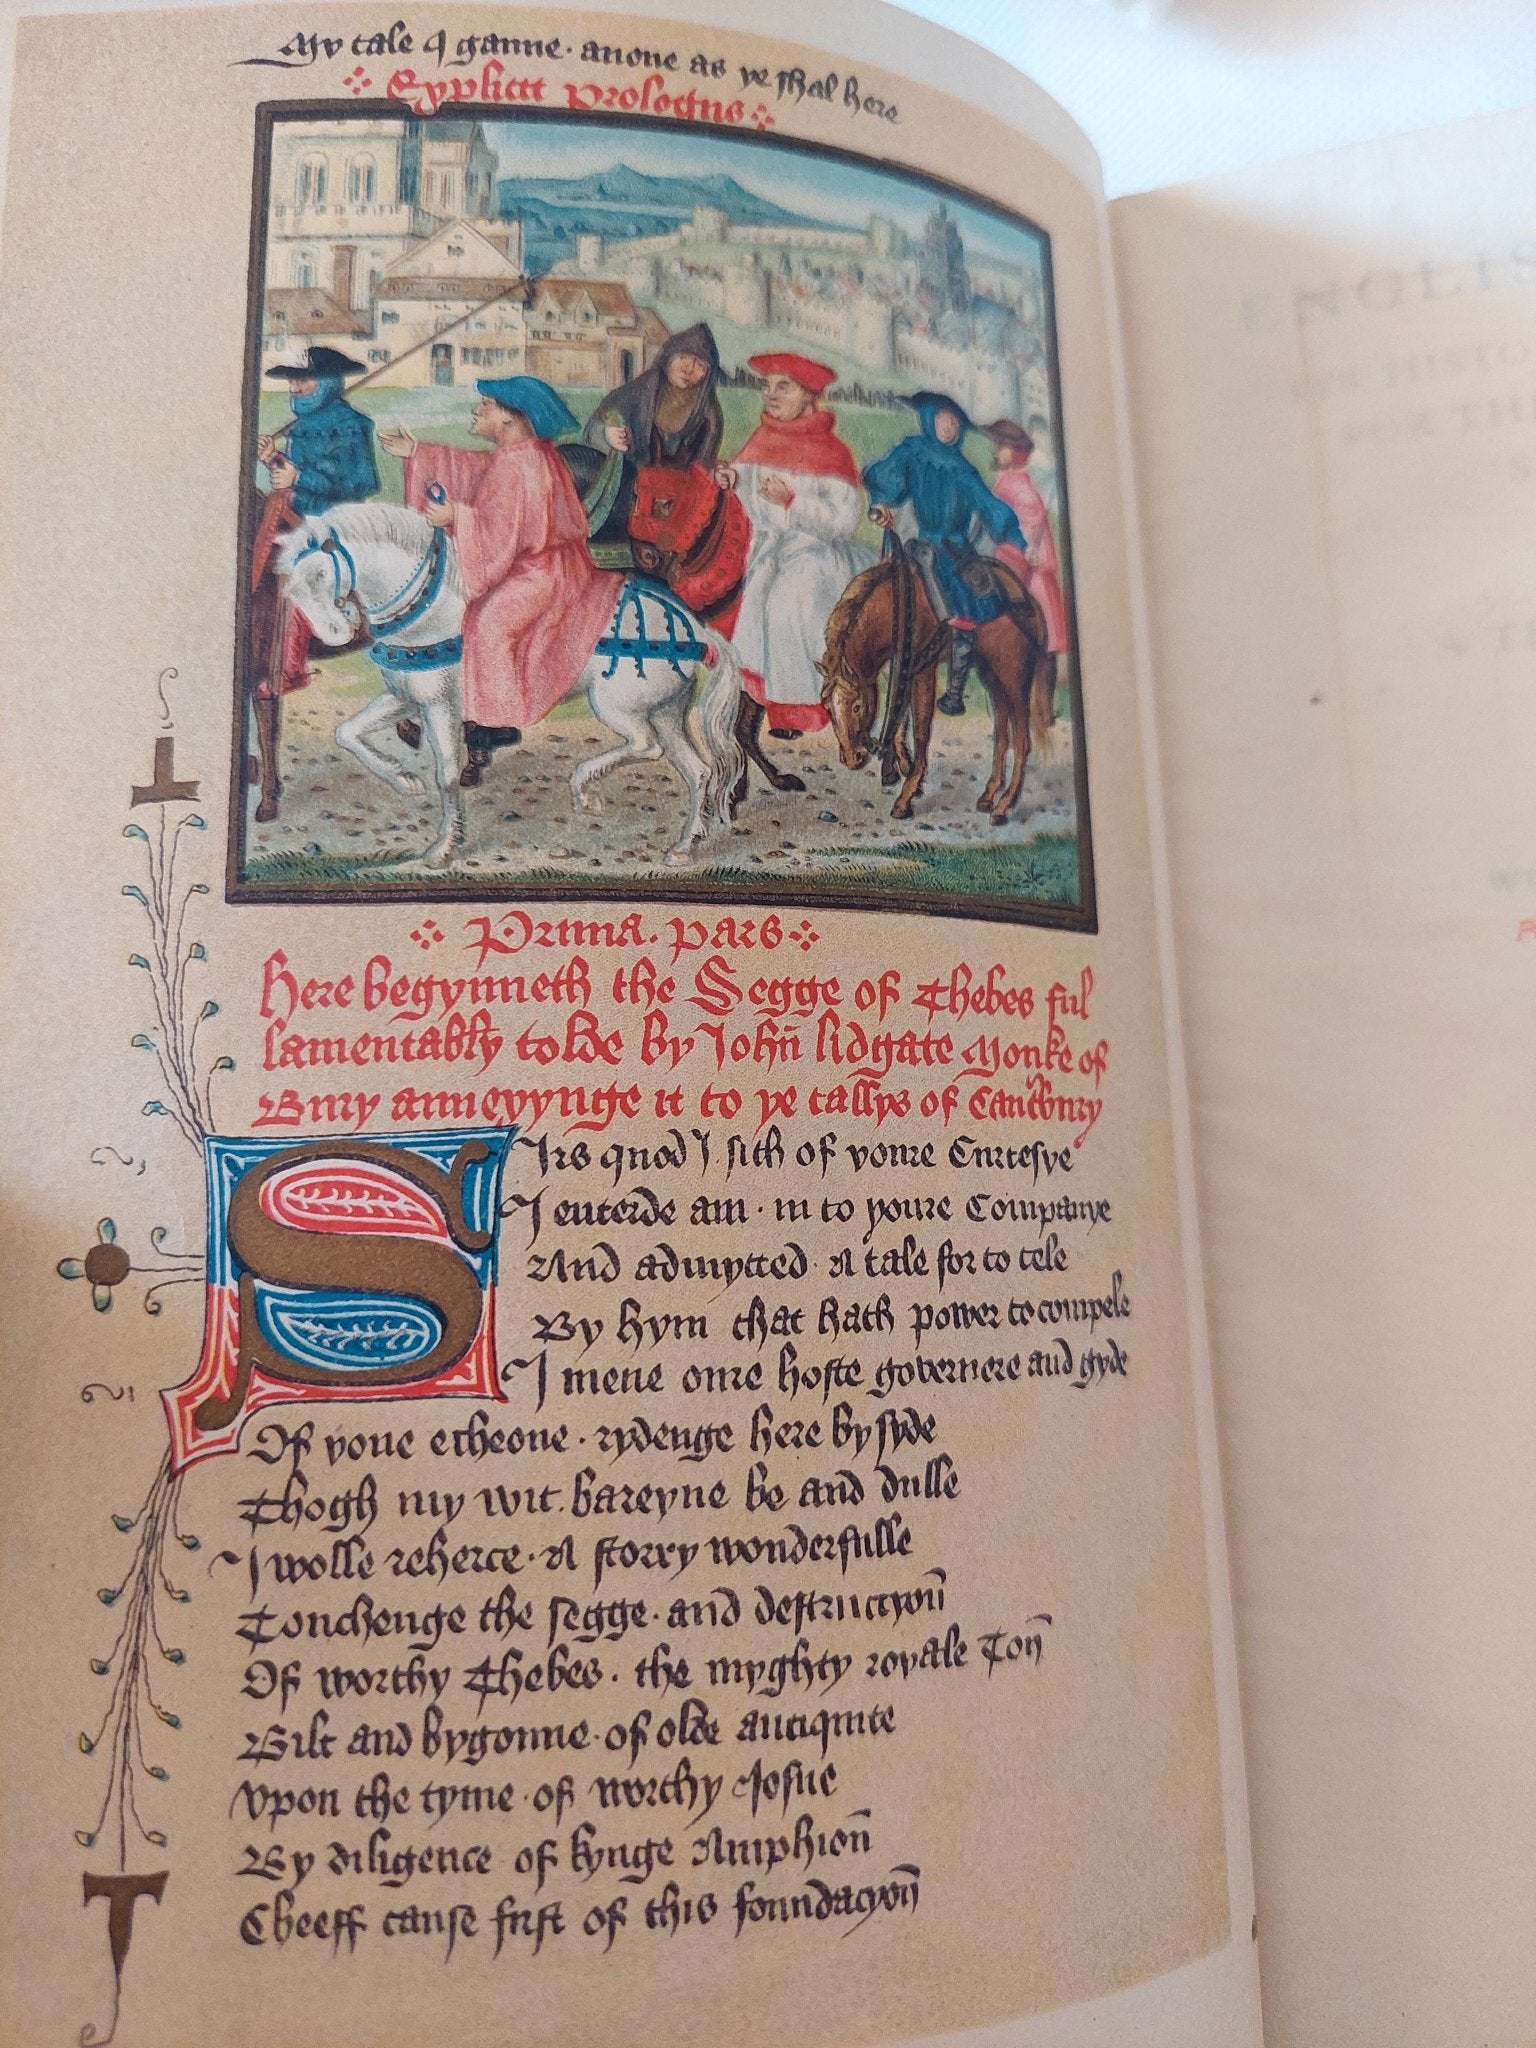 My tale I ganne · anone as ye shal here
Explicit Prologus
Prima · pars
Here begynneth the Segge of Thebes ful
lamentably tolde by Johñ lidgate Monke of
Bury anneyynge it to ye tallys of Cantbury
Sirs quod I · sith of youre Curtesye
I enterde am · in to youre Companye
And admytted · A tale for to tele
By hym that hath power to compele
I mene oure hoste governere and gyde
Of youe echeone · rydenge here by syde
Thogh my wit · bareyne be and dulle
I wolle reherce · A storry wonderfulle
Touchenge the segge · and destrucyoñ
Of worthy Thebes · the myghty royale Toñ
Bilt and bygonne · of olde antiquite
Vpon the tyme · of worthy Josue
By diligence of kynge Amphioñ
Cheeff cause first of this foundacyoñ
ENGLIS